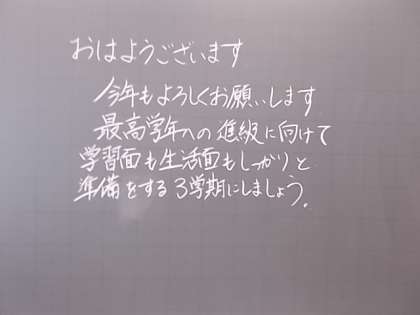 おはようございます
今年もよろしくお願いします
最高学年への進級に向けて
学習面も生活面もしっかりと
準備をする3学期にしましょう.